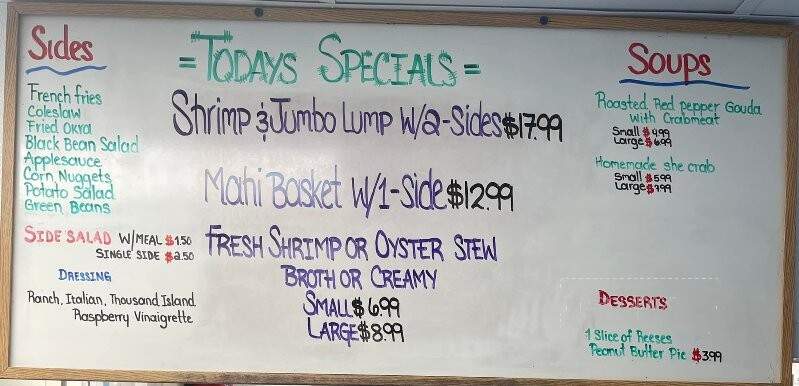 Sides
French fries
Coleslaw
Fried Okra
Black Bean Salad
Applesauce
Corn Nuggets
Potato Salad
Green Beans
SIDE SALAD W/MEAL $1.50
SINGLE SIDE $2.50
DRESSING
Ranch, Italian, Thousand Island
Raspberry Vinaigrette
= TODAYS SPECIALS =
Shrimp & Jumbo Lump W/2-Sides $17.99
Mahi Basket W/1-Side $12.99
FRESH SHRIMP OR OYSTER STEW
BROTH OR CREAMY
SMALL $6.99
LARGE $8.99
SOUPS
Roasted Red pepper Gouda
with Crabmeat
Small $4.99
Large $6.99
Homemade she crab
Small $5.99
Large $7.99
DESSERTS
1 Slice of Reeses
Peanut Butter Pie $3.99